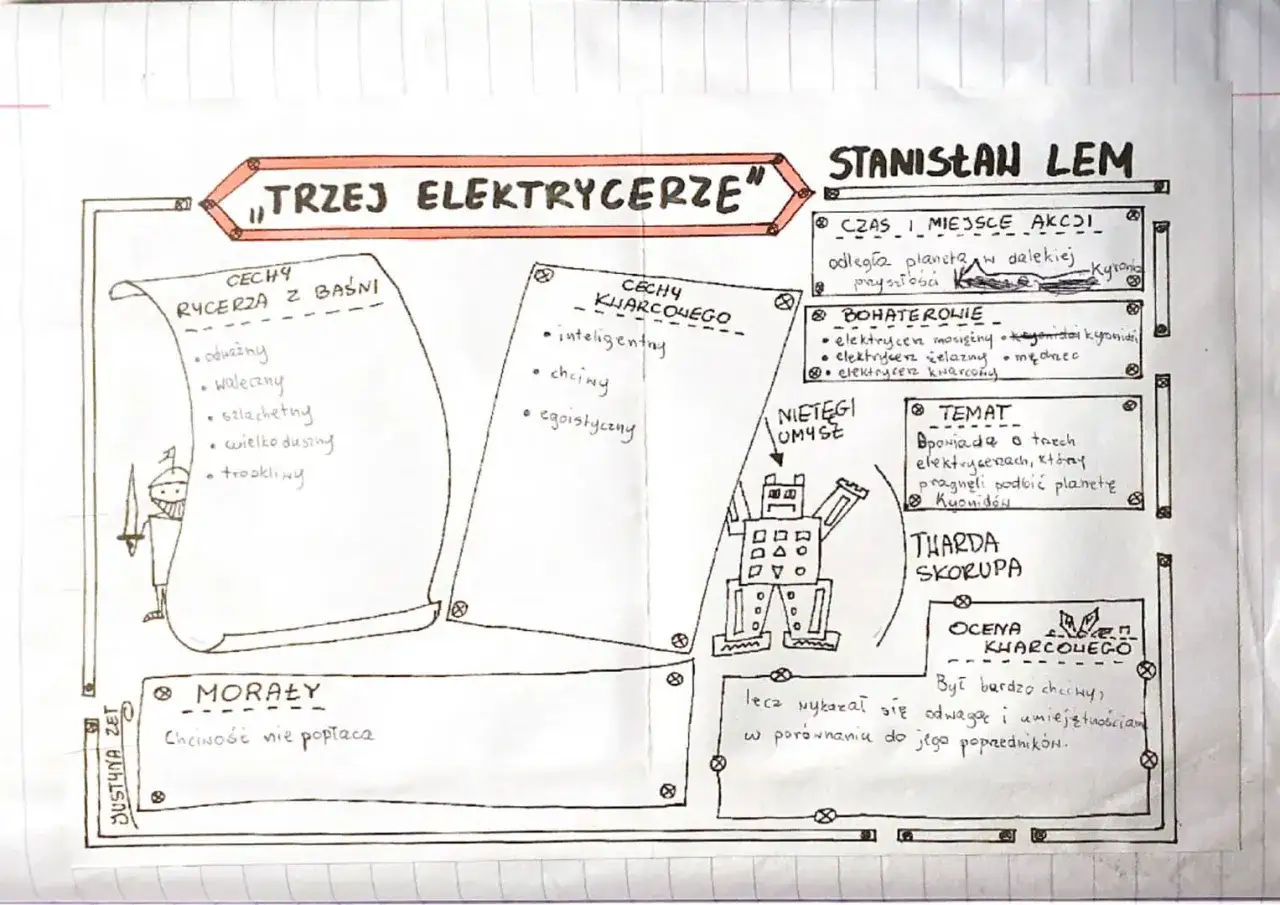 „TRZEJ ELEKTRYCERZE”
STANISŁAW LEM
CECHY
RYCERZA Z BAŚNI
• odważny
• waleczny
• szlachetny
• wielkoduszny
• troskliwy
CECHY
KWARCOWEGO
• inteligentny
• chciwy
• egoistyczny
CZAS I MIEJSCE AKCJI
odległa planeta w dalekiej
przyszłości Kyronia
BOHATEROWIE
• elektrycerz mosiężny • kyronidzi
• elektrycerz żelazny • mędrzec
• elektrycerz kwarcowy
NIETĘGI
UMYSŁ
TEMAT
Opowiada o trzech
elektrycerzach, którzy
pragnęli podbić planetę
Kyonidów
TWARDA
SKORUPA
MORAŁY
Chciwość nie popłaca
OCENA
KWARCOWEGO
Był bardzo chciwy,
lecz wykazał się odwagą i umiejętnościami
w porównaniu do jego poprzedników.
JUSTYNA ZET